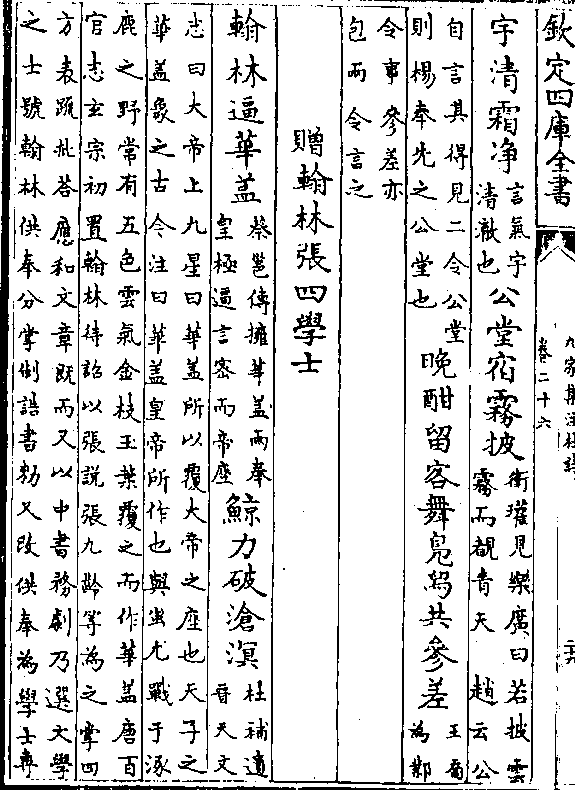 欽定四庫全書
九家集注杜詩
卷二十六
宇清霜净言氣宇清澈也公堂宿霧披衛瓘見樂廣曰若披雲霧而覩青天 趙云公
自言其得見二令公堂則楊奉先之公堂也晚酣留客舞鳬舄共參差王喬為鄴
令事參差亦包兩令言之
贈翰林張四學士
翰林逼華蓋蔡邕傳擁華蓋而奉皇極逼言密而帝座鯨力破滄溟杜補遺晉天文
志曰大帝上九星曰華蓋所以覆大帝之座也天子之華蓋象之古今注曰華蓋皇帝所作也與蚩尤戰于涿
鹿之野常有五色雲氣金枝玉葉覆之而作華蓋唐百官志玄宗初置翰林待詔以張説張九齡等為之掌四
方表䟽批答應和文章既而又以中書務劇乃選文學之士號翰林供奉分掌制誥書勅又改供奉為學士專